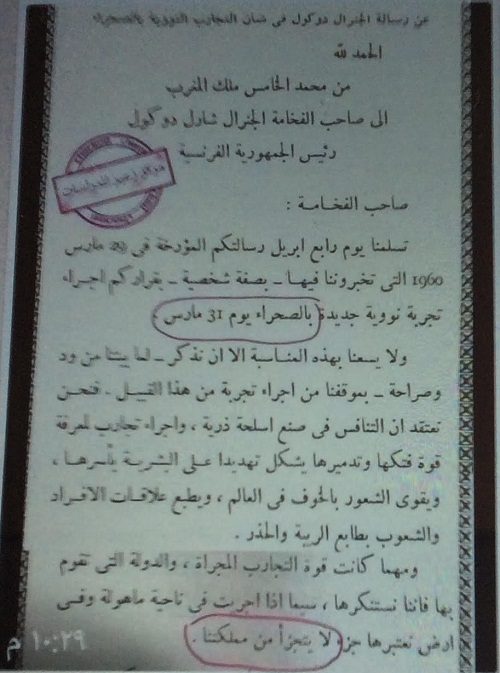 عن رسالة الجنرال دوكول فى شان التجارب النووية بالصحراء
الحمد لله
من محمد الخامس ملك المغرب
الى صاحب الفخامة الجنرال شارل دوكول
رئيس الجمهورية الفرنسية
صاحب الفخامة :
تسلمنا يوم رابع ابريل رسالتكم المؤرخة فى 29 مارس
1960 التى تخبروننا فيها ـ بصفة شخصية ـ بقراركم اجراء
تجربة نووية جديدة بالصحراء يوم 31 مارس .
ولا يسعنا بهذه المناسبة الا ان نذكر ـ لما بيننا من ود
وصراحة ـ بموقفنا من اجراء تجربة من هذا القبيل . فنحن
نعتقد ان التنافس فى صنع اسلحة ذرية ، واجراء تجارب لمعرفة
قوة فتكها وتدميرها يشكل تهديدا على البشرية بأسرها ،
ويقوى الشعور بالخوف فى العالم ، ويطبع علاقات الافراد
والشعوب بطابع الريبة والحذر .
ومهما كانت قوة التجارب المجراة ، والدولة التى تقوم
بها فاننا نستنكرها ، سيما اذا اجريت فى ناحية ماهولة وفى
ارض نعتبرها جزء لا يتجزأ من مملكتنا .
١٠:٢٩ م